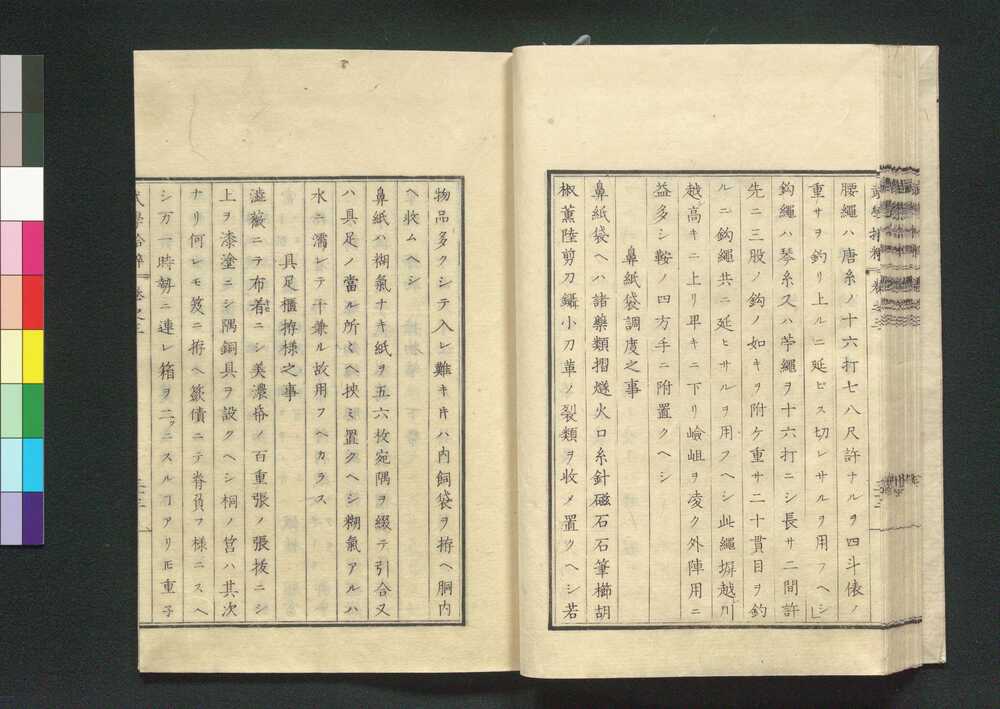 腰繩ハ唐糸ノ十六打七八尺許ナルヲ四斗俵ノ
重サヲ釣リ上ルニ延ビス切レサルヲ用フヘシ
鈎繩ハ琴糸又ハ苧繩ヲ十六打ニシ長サ二間許
先ニ三股ノ鈎ノ如キヲ附ケ重サ二十貫目ヲ釣
ルニ鈎繩共ニ延ヒサルヲ用フヘシ此繩塀越川
越高キニ上リ卑キニ下リ嶮岨ヲ凌ク外陣用ニ
益多シ鞍ノ四方手ニ附置クヘシ
鼻紙袋調度之事
鼻紙袋ヘハ諸藥類摺燧火口糸針磁石石筆櫛胡
椒薫陸剪刀鑷小刀革ノ裂類ヲ收メ置クヘシ若
物品多クシテ入レ難キ寸ハ内飼袋ヲ拵ヘ胴内
ヘ收ムヘシ
鼻紙ハ糊氣ナキ紙ヲ五六枚宛隅ヲ綴テ引合又
ハ具足ノ當ル所ミヘ挾ミ置クヘシ糊氣アルハ
水ニ濡レテ干兼ル故用フヘカラス
具足櫃拵様之事
澁薇ニテ布着ニシ美濃帋ノ百重張ノ張抜ニシ
上ヲ漆塗ニシ隅銅具ヲ設クヘシ桐ノ筥ハ其次
ナリ何レモ笈ニ拵ヘ歛債ニテ脊負フ様ニスヘ
シ万一時勢ニ連レ箱ヲ二ツニスルヿアリ圧重子
武學拾粹 巻之三